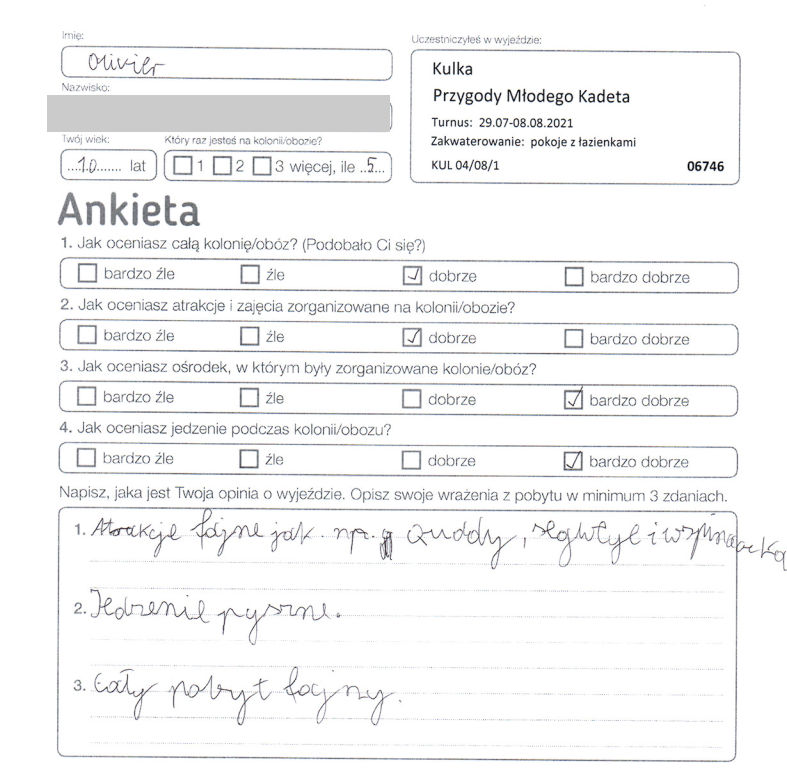 Imię:
Olivier
Nazwisko:
Twój wiek:
...10....... lat
Który raz jesteś na kolonii/obozie?
1 2 3 więcej, ile ..5...
Uczestniczyłeś w wyjeździe:
Kulka
Przygody Młodego Kadeta
Turnus: 29.07-08.08.2021
Zakwaterowanie: pokoje z łazienkami
KUL 04/08/1 06746
Ankieta
1. Jak oceniasz całą kolonię/obóz? (Podobało Ci się?)
bardzo źle źle dobrze bardzo dobrze
2. Jak oceniasz atrakcje i zajęcia zorganizowane na kolonii/obozie?
bardzo źle źle dobrze bardzo dobrze
3. Jak oceniasz ośrodek, w którym były zorganizowane kolonie/obóz?
bardzo źle źle dobrze bardzo dobrze
4. Jak oceniasz jedzenie podczas kolonii/obozu?
bardzo źle źle dobrze bardzo dobrze
Napisz, jaka jest Twoja opinia o wyjeździe. Opisz swoje wrażenia z pobytu w minimum 3 zdaniach.
1. Atrakcje fajne jak np. Quddy, i wspinaczka
2. Jedzenie pyszne.
3. Cały pobyt fajny.